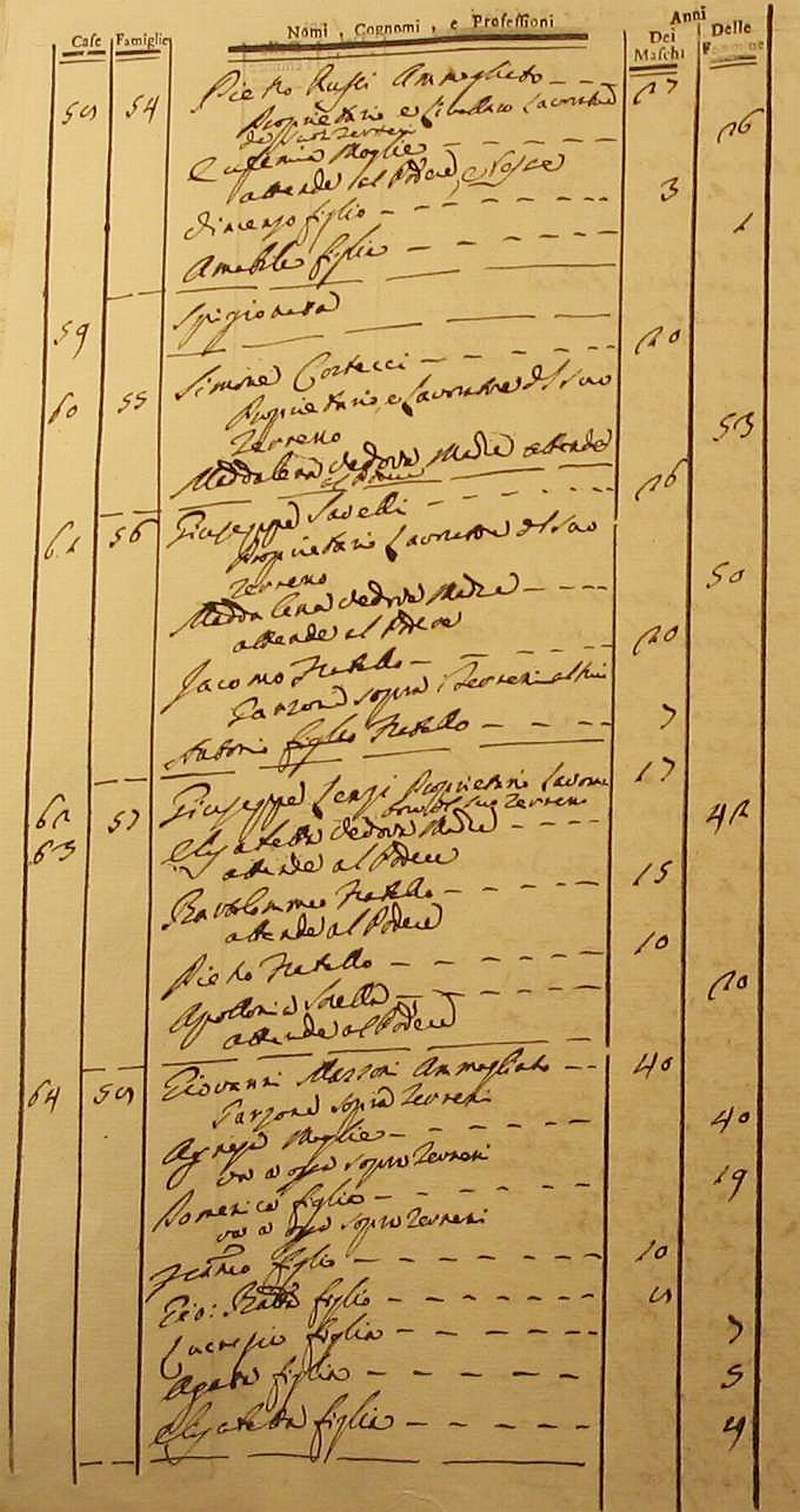 Case Famiglie Nomi, Cognomi, e Professioni Anni Dei Maschi Delle
54 Pietro Ammogliato 27
Proprietario e
26
Moglie
attende al Podere, e
Vincenzo figlio 3
Amabile figlia 1
59 Spigionata
60 55 Simone 20
Proprietario e Lavoratore del suo
Terreno
Maddalena vedova Madre attende 53
al Podere
61 56 Giuseppe Savelli 26
Proprietario Lavoratore del suo
Terreno
Maddalena vedova Madre 50
attende al Podere
Jacomo Fratello 20
Garzone sopra Terreni altrui
Antonio figlio Fratello 7
62 57 Giuseppe Lenzi Proprietario 17
del suo Terreno
63 Elisabetta vedova Madre 42
attende al Podere
Bartolommeo Fratello 15
attende al Podere
Pietro Fratello 10
Apollonia Sorella 20
attende al Podere
64 Giovanni Massoni Ammogliato 40
Garzone sopra Terreni
Agnese Moglie 40
va a opra sopra Terreni
Domenica figlia 19
va a opra sopra Terreni
figlio 10
Gio: Batta figlio
Lucrezia figlia 7
Agata figlia 5
Elisabetta figlia 4